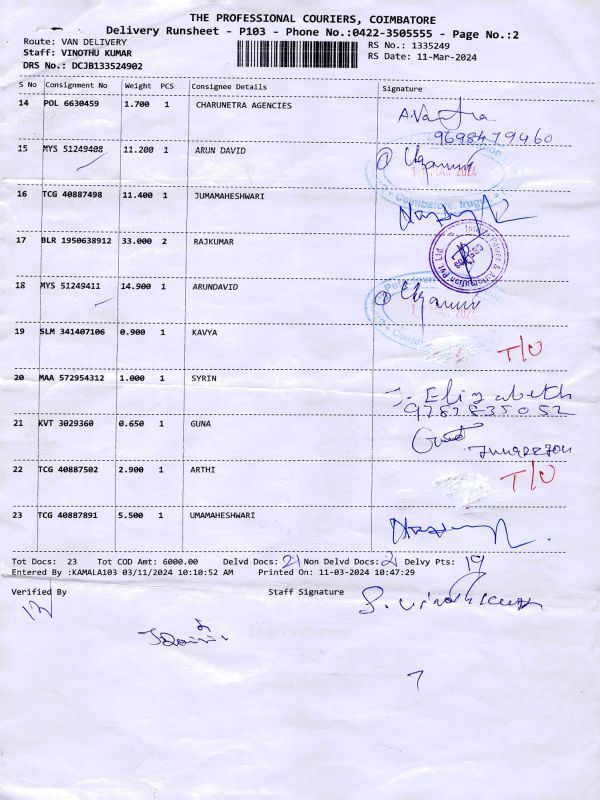 THE PROFESSIONAL COURIERS, COIMBATORE
Delivery Runsheet - P103 - Phone No.:0422-3505555 - Page No.:2
Route: VAN DELIVERY
RS No.: 1335249
Staff: VINOTHU KUMAR
RS Date: 11-Mar-2024
DRS No.: DCJB133524902
S No Consignment No Weight PCS Consignee Details Signature
14 POL 6630459 1.700 1 CHARUNETRA AGENCIES
9698479460
15 MYS 51249408 11.200 1 ARUN DAVID
11 MAR 2024
16 TCG 40887498 11.400 1 JUMAMAHESHWARI
17 BLR 1950638912 33.000 2 RAJKUMAR
18 MYS 51249411 14.900 1 ARUNDAVID
11 MAR 2024
19 SLM 341407106 0.900 1 KAVYA T/O
20 MAA 572954312 1.000 1 SYRIN J. Elizabeth
21 KVT 3029360 0.650 1 GUNA
22 TCG 40887502 2.900 1 ARTHI T/O
23 TCG 40887891 5.500 1 UMAMAHESHWARI
Tot Docs: 23 Tot COD Amt: 6000.00 Delvd Docs: 21 Non Delvd Docs: 2 Delvy Pts: 19
Entered By :KAMALA103 03/11/2024 10:10:52 AM Printed On: 11-03-2024 10:47:29
Verified By Staff Signature S. Vinoth Kumar
7